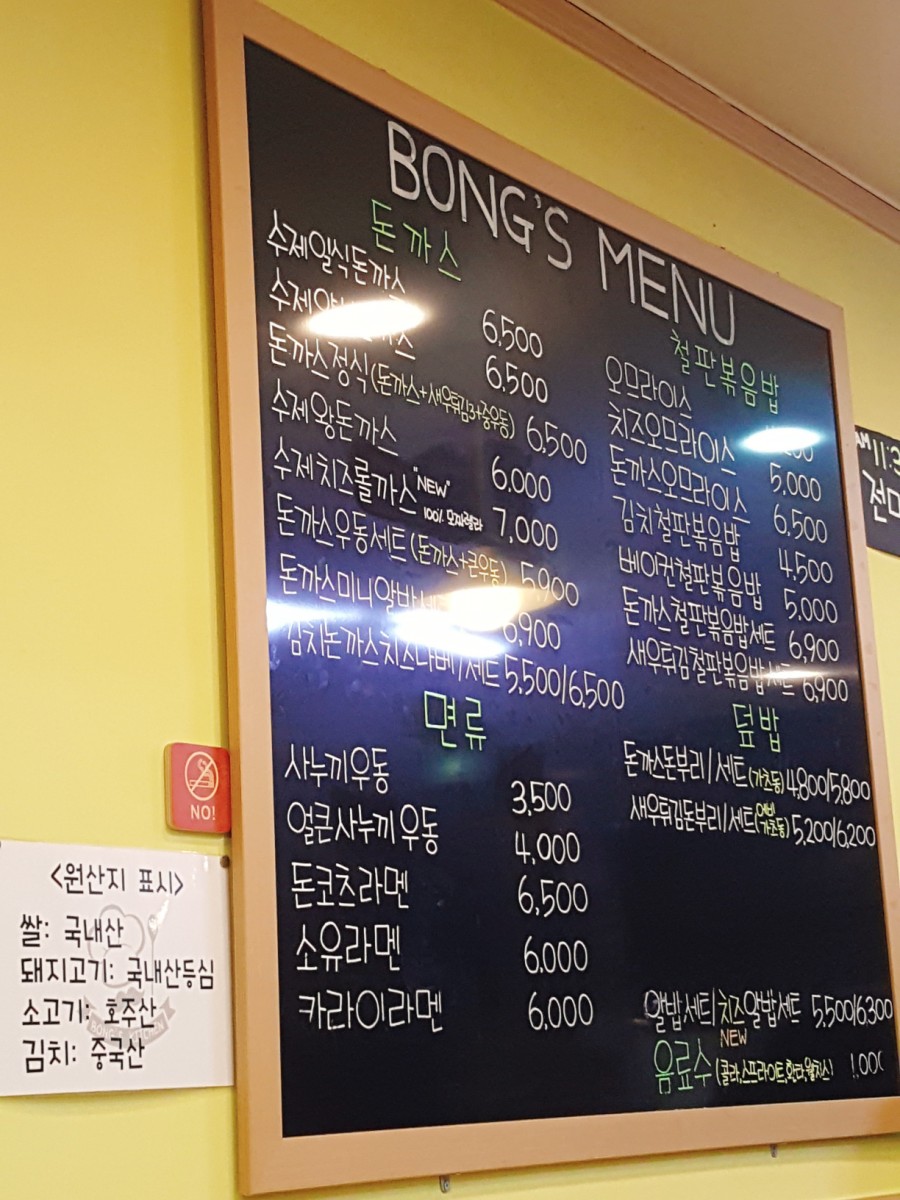 BONG'S MENU
돈까스
수제일식돈까스 6,500
수제 6,500
돈까스정식(돈까스+새우튀김3+중우동) 6,500
수제왕돈까스 6,000
수제치즈롤까스 "NEW" 100% 모짜렐라 7,000
돈까스우동세트(돈까스+큰우동) 5,900
돈까스미니알밥세트 6,900
김치돈까스치즈나베/세트 5,500/6,500
면류
사누끼우동 3,500
얼큰사누끼우동 4,000
돈코츠라멘 6,500
소유라멘 6,000
카라이라멘 6,000
철판볶음밥
오므라이스
치즈오므라이스 5,000
돈까스오므라이스 6,500
김치철판볶음밥 4,500
베이컨철판볶음밥 5,000
돈까스철판볶음밥세트 6,900
새우튀김철판볶음밥세트 6,900
덮밥
돈까스돈부리/세트(가츠동) 4,800/5,800
새우튀김돈부리/세트(에비가츠동) 5,200/6,200
알밥세트/치즈알밥세트 5,500/6,300
NEW
음료수(콜라,스프라이트,환타,웰치스) 1,000
NO!
<원산지 표시>
쌀: 국내산
돼지고기: 국내산등심
소고기: 호주산
김치: 중국산
AM 11:3